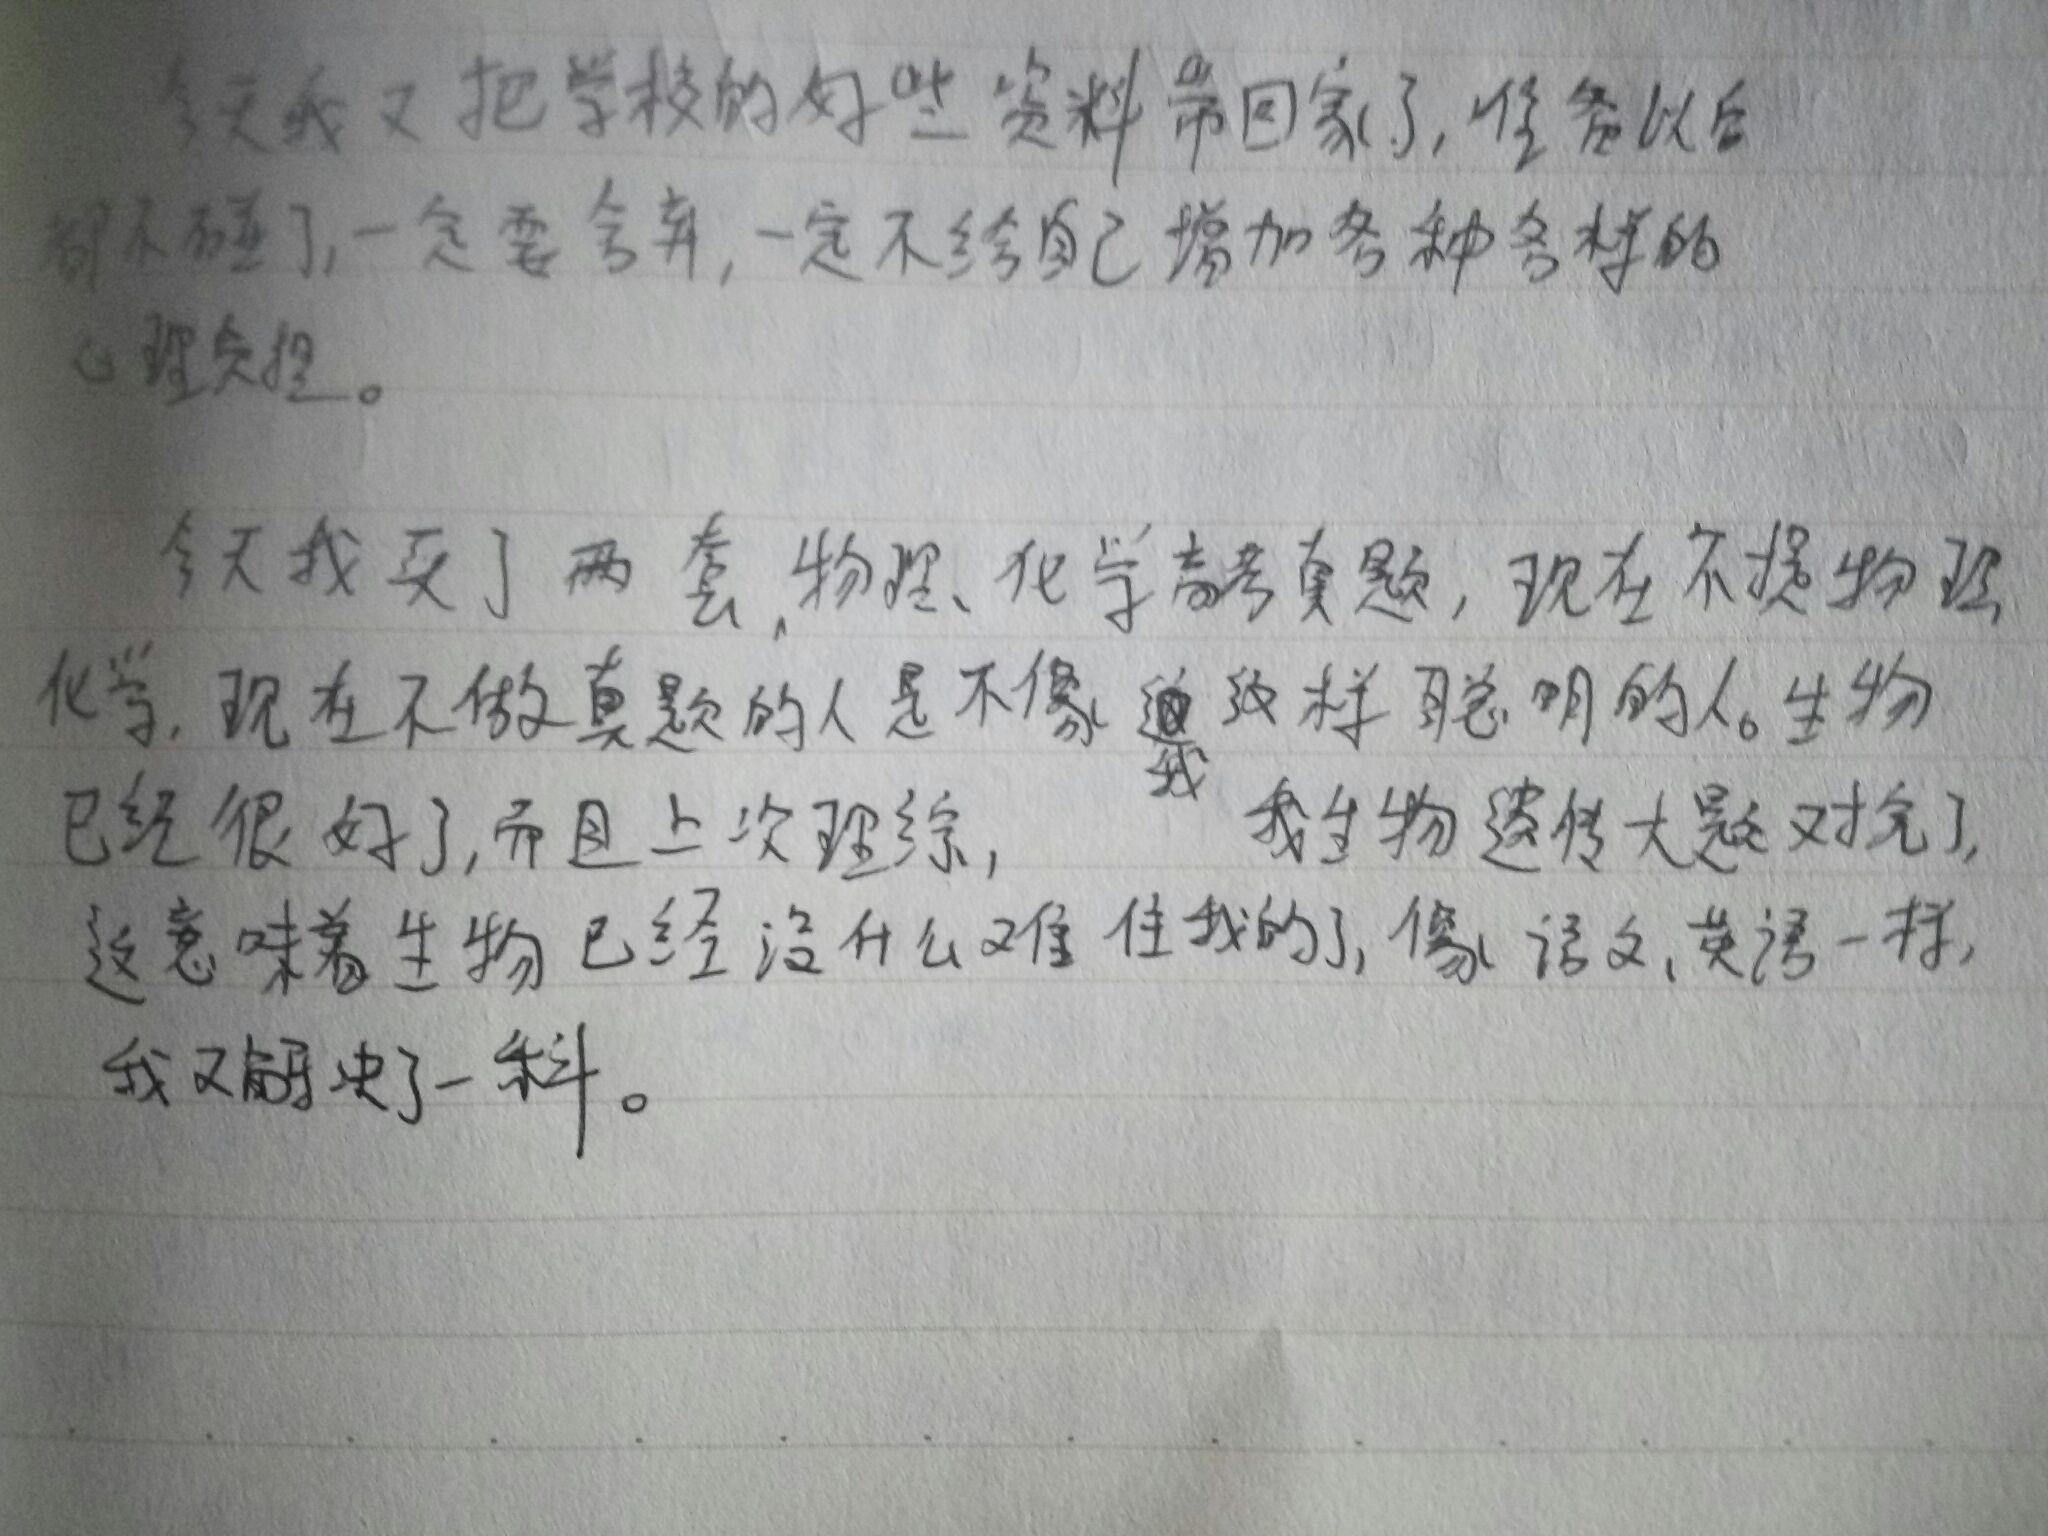 今天我又把学校的好些资料带回家了,准备以后
都不碰了,一定要舍弃,一定不给自己增加各种各样的
心理负担。
今天我买了两套,物理、化学高考真题,现在不提物理
化学,现在不做真题的人是不像我这样聪明的人。生物
已经很好了,而且上次理综,我生物遗传大题又对完了,
这意味着生物已经没什么难住我的了,像语文、英语一样,
我又解决了一科。